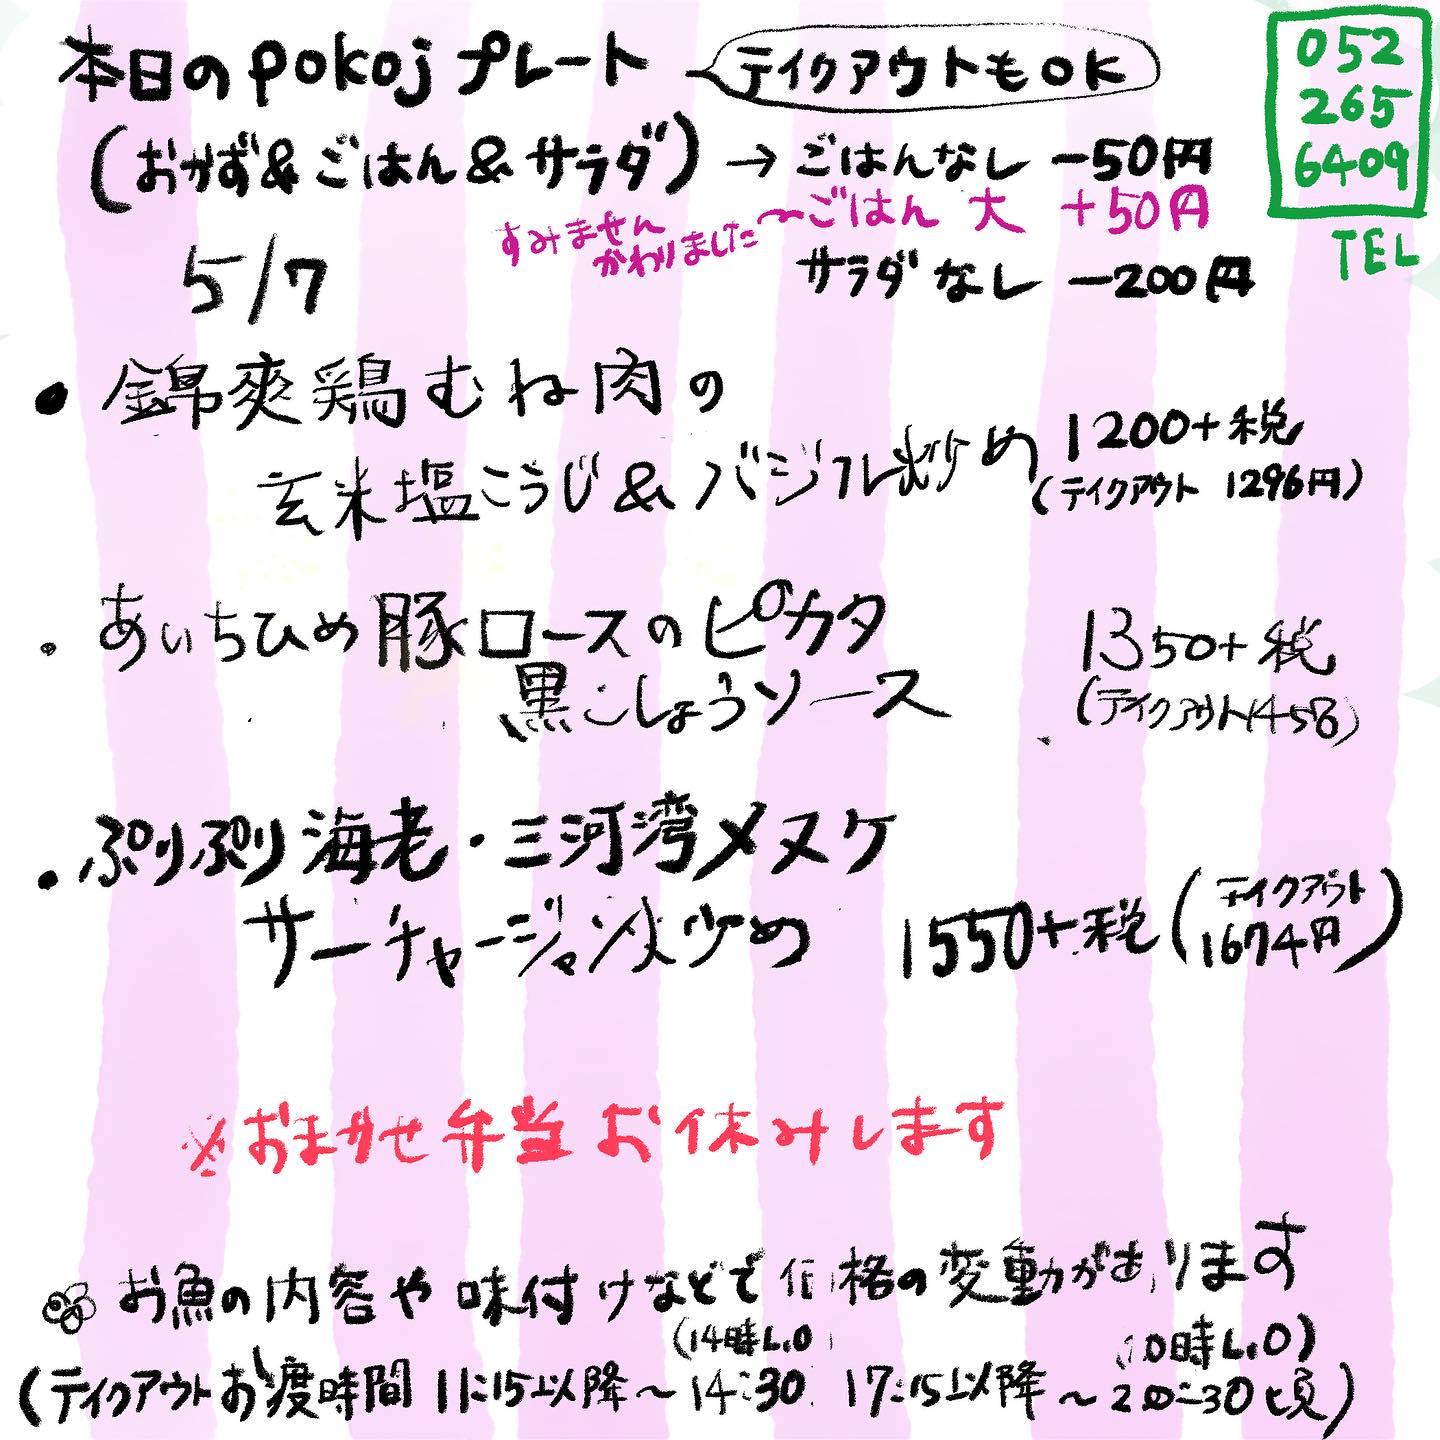 本日のpokojプレート テイクアウトもOK
052
265
6409
TEL
(おかず&ごはん&サラダ)→ごはんなし −50円
すみません
かわりました
〜ごはん 大 +50円
サラダなし −200円
5/7
● 錦爽鶏むね肉の
玄米塩こうじ&バジル炒め 1200+税
(テイクアウト 1296円)
・あいちひめ豚ロースのピカタ
黒こしょうソース
1350+税
(テイクアウト1458)
・ぷりぷり海老・三河湾メヌケ
サーチャージャン炒め 1550+税(テイクアウト
1674円)
※おまかせ弁当お休みします
お魚の内容や味付けなどで価格の変動があります
(14時L.O
時L.O)
(テイクアウトお渡時間 11:15以降〜14:30 17:15以降〜20:30頃)